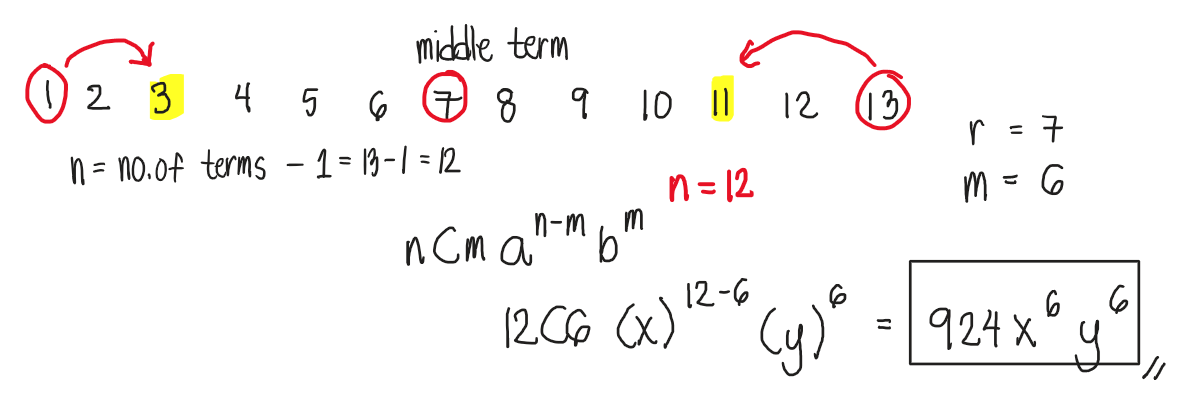 middle term
1 2 3 4 5 6 7 8 9 10 11 12 13
n = no. of terms - 1 = 13 - 1 = 12
r = 7
n = 12
m = 6
nCm a^{n-m} b^{m}
12C6 (x)^{12-6} (y)^{6} = 924x^{6}y^{6} //